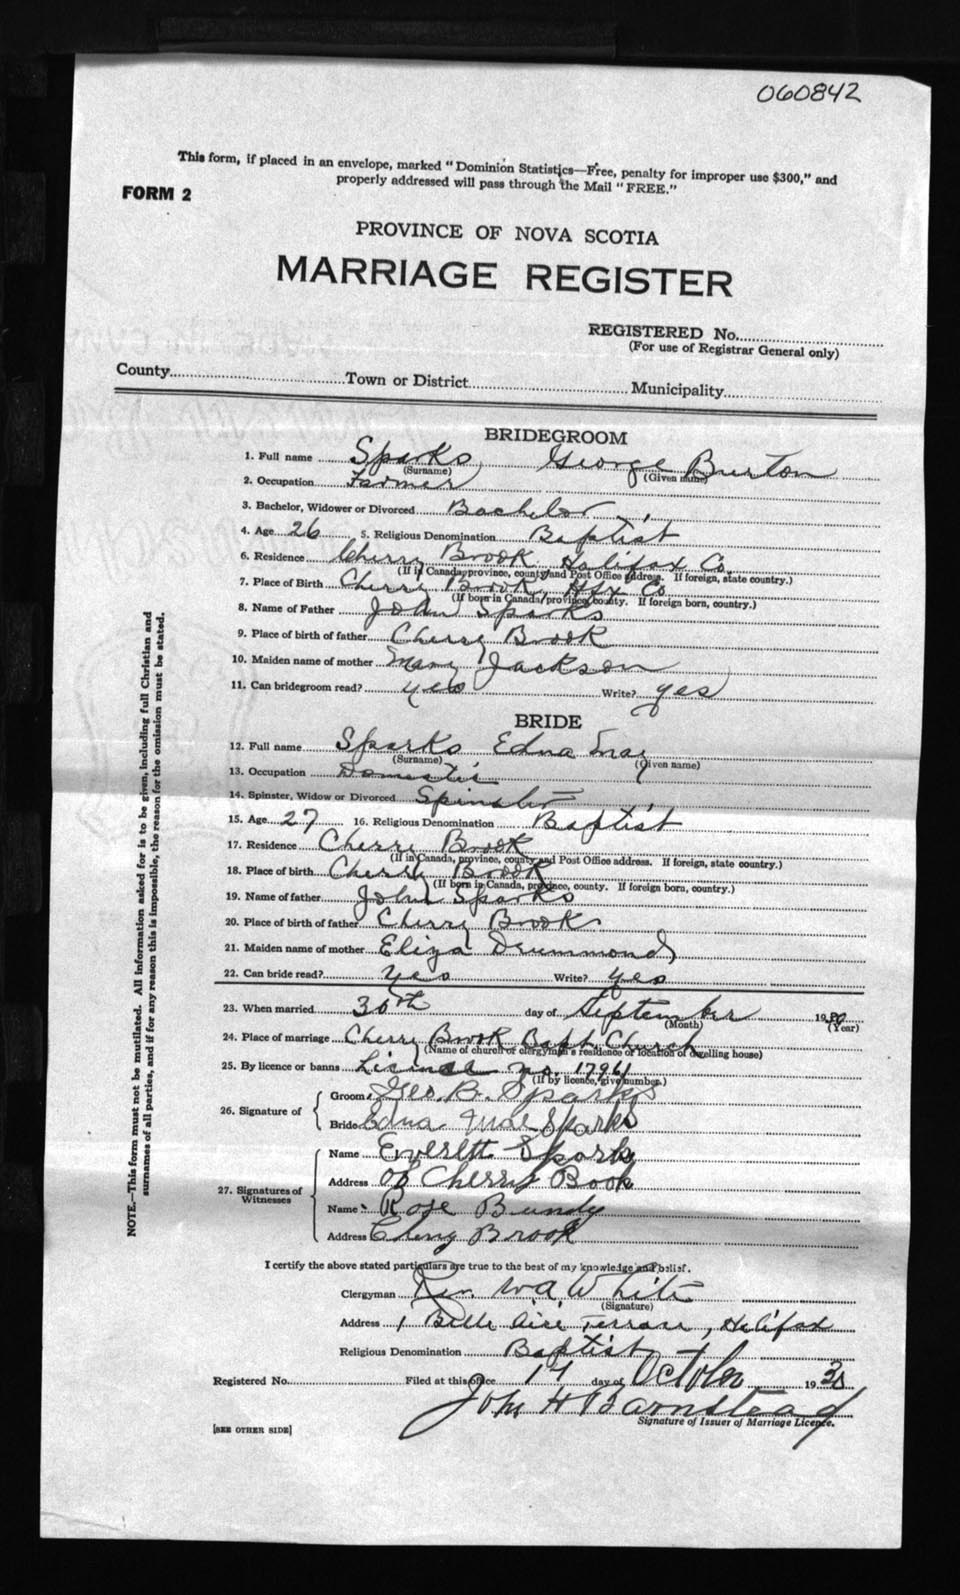 060842
This form, if placed in an envelope, marked "Dominion Statistics—Free, penalty for improper use $300," and
properly addressed will pass through the Mail "FREE."
FORM 2
PROVINCE OF NOVA SCOTIA
MARRIAGE REGISTER
REGISTERED No.
(For use of Registrar General only)
County Town or District Municipality
BRIDEGROOM
1. Full name Sparks, George Burton
(Surname) (Given name)
2. Occupation Farmer
3. Bachelor, Widower or Divorced Bachelor
4. Age 26 5. Religious Denomination Baptist
6. Residence Cherry Brook Halifax Co.
(If in Canada, province, county and Post Office address. If foreign, state country.)
7. Place of Birth Cherry Brook, Hfx Co
(If born in Canada, province, county. If foreign born, country.)
8. Name of Father John Sparks
9. Place of birth of father Cherry Brook
10. Maiden name of mother Mary Jackson
11. Can bridegroom read? yes Write? yes
BRIDE
12. Full name Sparks Edna May
(Surname) (Given name)
13. Occupation Domestic
14. Spinster, Widow or Divorced Spinster
15. Age 27 16. Religious Denomination Baptist
17. Residence Cherry Brook
(If in Canada, province, county and Post Office address. If foreign, state country.)
18. Place of birth Cherry Brook
(If born in Canada, province, county. If foreign born, country.)
19. Name of father John Sparks
20. Place of birth of father Cherry Brook
21. Maiden name of mother Eliza Drummond
22. Can bride read? yes Write? yes
23. When married 30th day of September 1930
(Month) (Year)
24. Place of marriage Cherry Brook Bapt. Church
(Name of church or clergyman's residence or location of dwelling house)
25. By licence or banns License no. 17961
(If by licence, give number.)
26. Signature of
Groom Geo. B. Sparks
Bride Edna Mae Sparks
27. Signatures of
Witnesses
Name Everett Sparks
Address of Cherry Book
Name Rose Bundy
Address Cherry Brook
I certify the above stated particulars are true to the best of my knowledge and belief.
Clergyman Rev. W A White
(Signature)
Address 1 Belle Aire Terrace, Halifax
Religious Denomination Baptist
Registered No. Filed at this office 17 day of October 1930
John H Barnstead
Signature of Issuer of Marriage Licence.
[SEE OTHER SIDE]
NOTE.—This form must not be mutilated. All information asked for is to be given, including full Christian and
surnames of all parties, and if for any reason this is impossible, the reason for the omission must be stated.